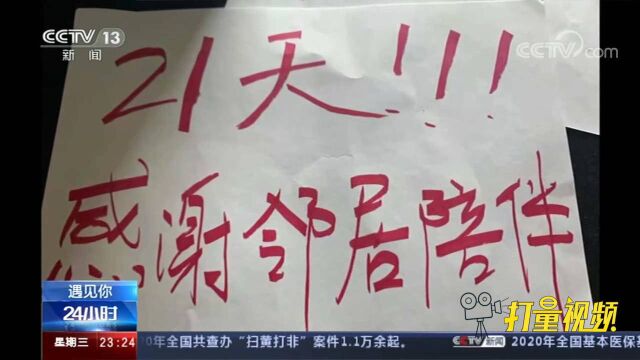 CCTV 13
新闻
CCTV.com
21天!!!
感谢邻居陪伴
遇见你
24小时
打量视频
星期三 23:24
20年全国共查办“扫黄打非”案件1.1万余起。 CCTV 新闻 2020年全国基本医保